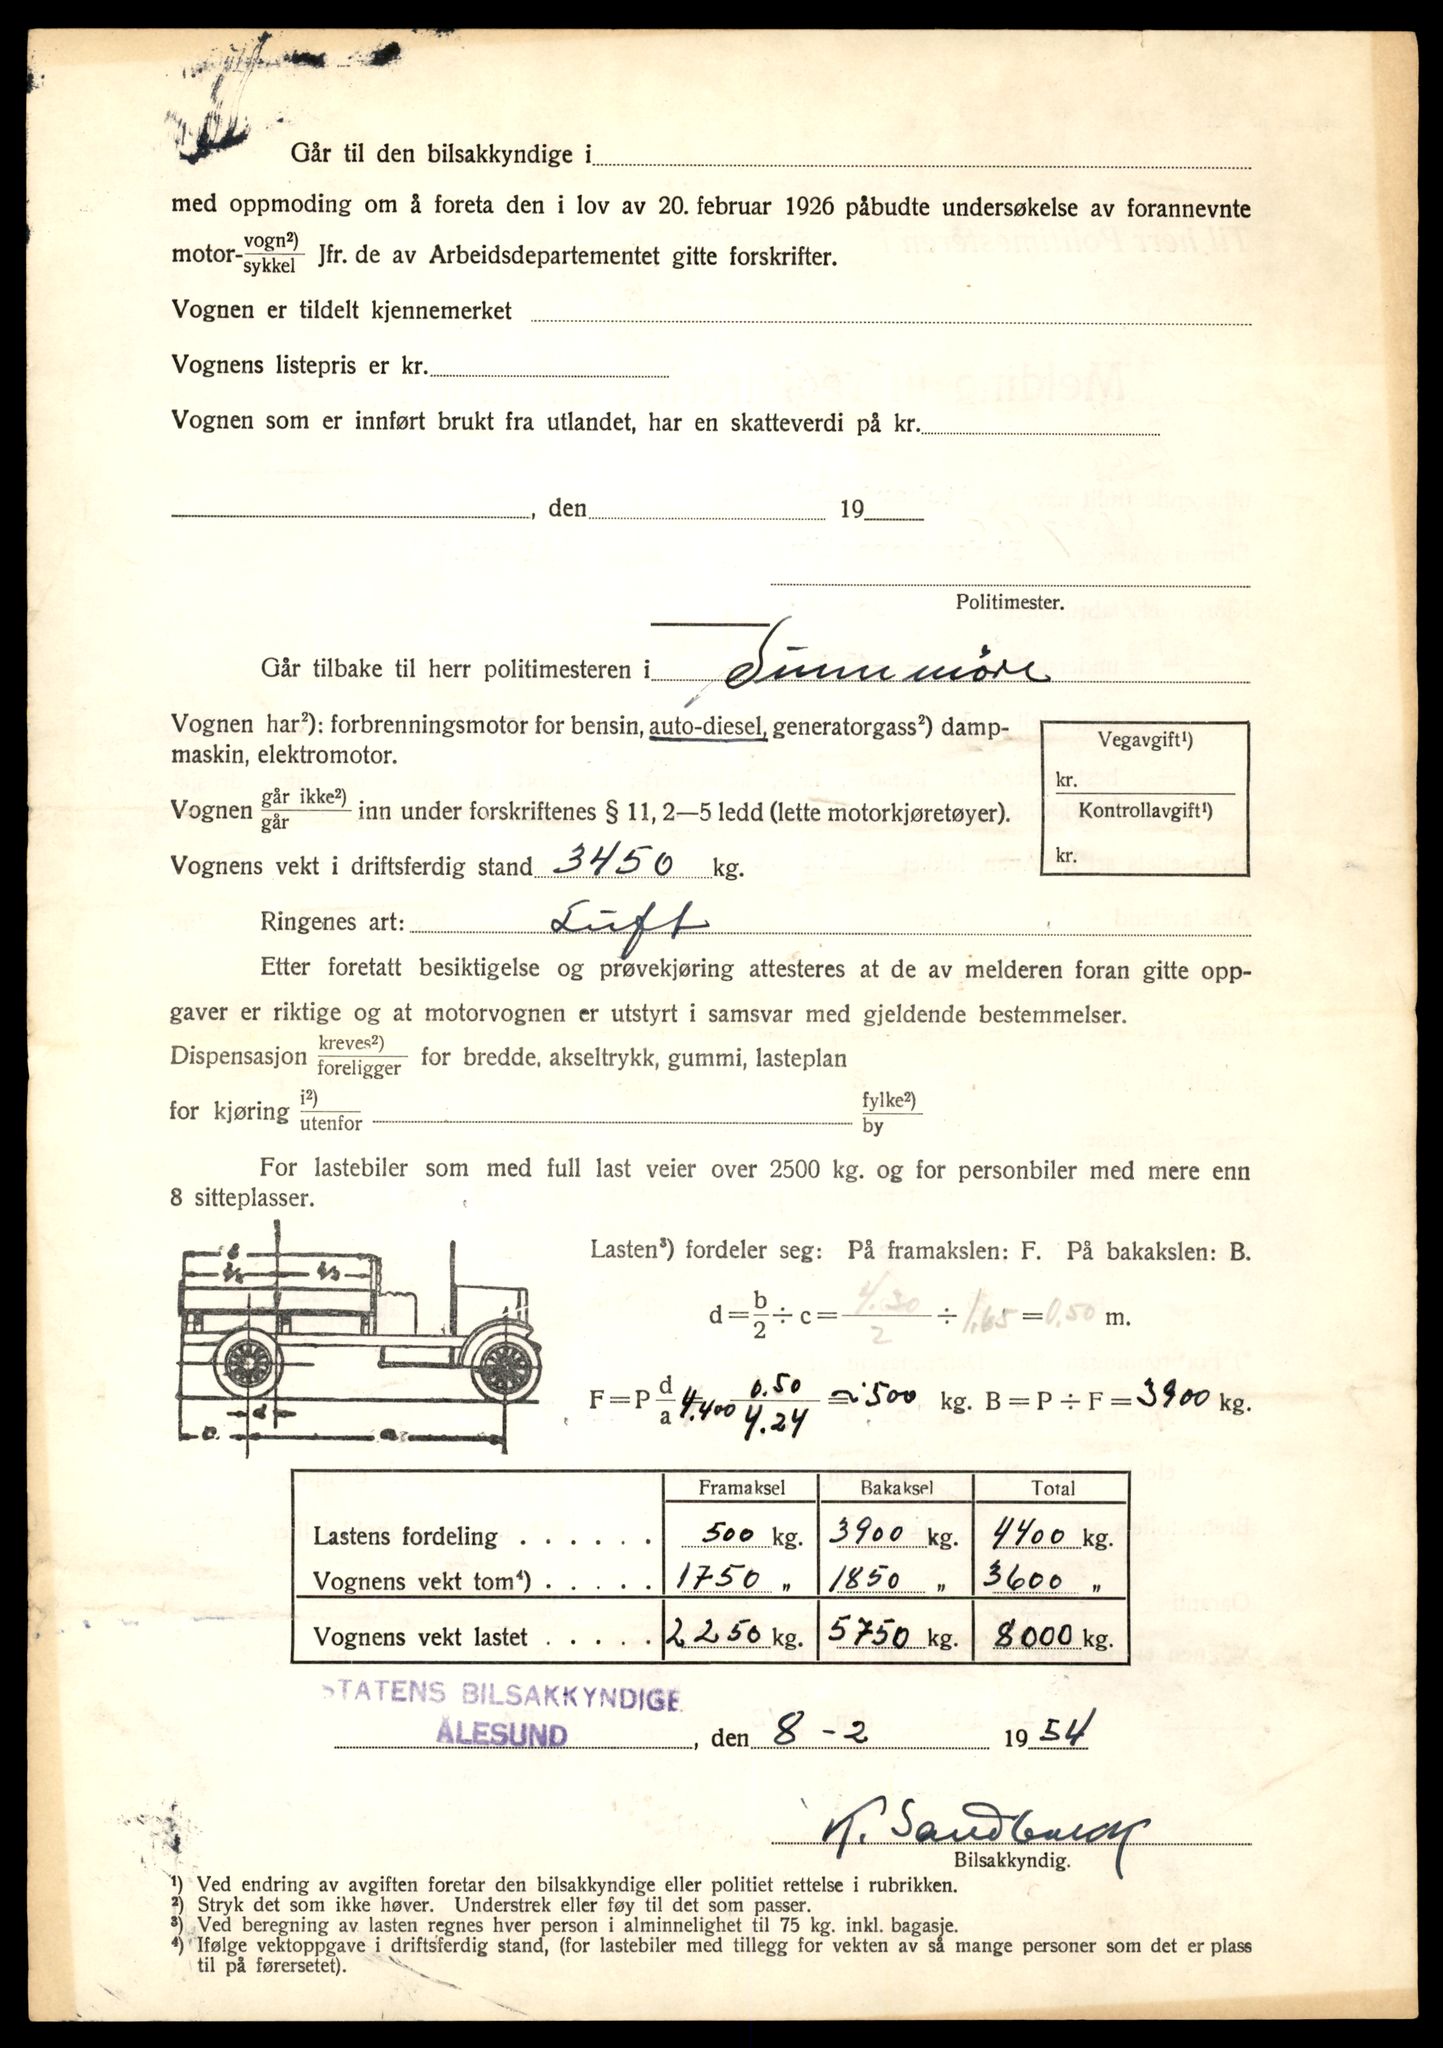 Går til den bilsakkyndige i
med oppmoding om å foreta den i lov av 20. februar 1926 påbudte undersøkelse av forannevnte
motor- vogn²) / sykkel Jfr. de av Arbeidsdepartementet gitte forskrifter.
Vognen er tildelt kjennemerket
Vognens listepris er kr.
Vognen som er innført brukt fra utlandet, har en skatteverdi på kr.
, den 19
Politimester.
Går tilbake til herr politimesteren i Sunnmöre
Vognen har²): forbrenningsmotor for bensin, auto-diesel, generatorgass²) damp-
maskin, elektromotor.
Vegavgift¹)
kr.
Kontrollavgift¹)
kr.
Vognen går ikke²) / går inn under forskriftenes § 11, 2—5 ledd (lette motorkjøretøyer).
Vognens vekt i driftsferdig stand 3450 kg.
Ringenes art: Luft
Etter foretatt besiktigelse og prøvekjøring attesteres at de av melderen foran gitte opp-
gaver er riktige og at motorvognen er utstyrt i samsvar med gjeldende bestemmelser.
Dispensasjon kreves²) / foreligger for bredde, akseltrykk, gummi, lasteplan
for kjøring i²) / utenfor fylke²) / by
For lastebiler som med full last veier over 2500 kg. og for personbiler med mere enn
8 sitteplasser.
Lasten³) fordeler seg: På framakslen: F. På bakakslen: B.
d = b/2 ÷ c = 4.30/2 ÷ 1.65 = 0.50 m.
F = P d/a 4.400 0.50/4.24 = ~ 500 kg. B = P ÷ F = 3900 kg.
b
d
c a
Framaksel Bakaksel Total
Lastens fordeling . . . . . . 500 kg. 3900 kg. 4400 kg.
Vognens vekt tom⁴) . . . . . 1750 „ 1850 „ 3600 „
Vognens vekt lastet . . . . . 2250 kg. 5750 kg. 8000 kg.
STATENS BILSAKKYNDIGE
ÅLESUND , den 8 - 2 1954
K. Sandback
Bilsakkyndig.
¹) Ved endring av avgiften foretar den bilsakkyndige eller politiet rettelse i rubrikken.
²) Stryk det som ikke høver. Understrek eller føy til det som passer.
³) Ved beregning av lasten regnes hver person i alminnelighet til 75 kg. inkl. bagasje.
⁴) Ifølge vektoppgave i driftsferdig stand, (for lastebiler med tillegg for vekten av så mange personer som det er plass
til på førersetet).